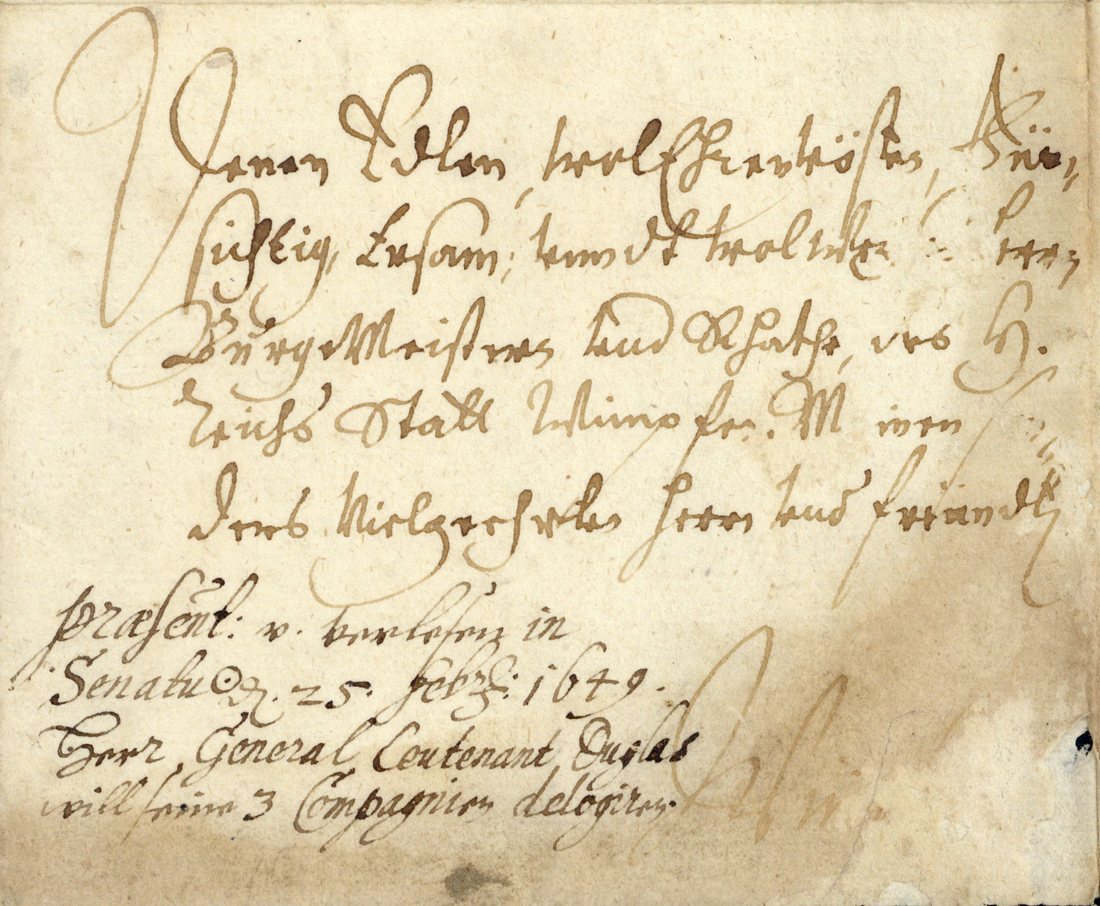 Denen Edlen, wolEhrenvösten, Für-
sichtig, Ersam, vnndt wol Herrn
BürgerMeistern vnd Rhathe, des H.
Reichs Statt Wimpfen. Meinen
ders Vielgeehrten Herrn vnd freündt
præsent: v. verlesen in
Senatu ☉ d. 25. Febr: 1649.
Herr General Leutenant Duglas
will seine 3 Compagnien delogiren.